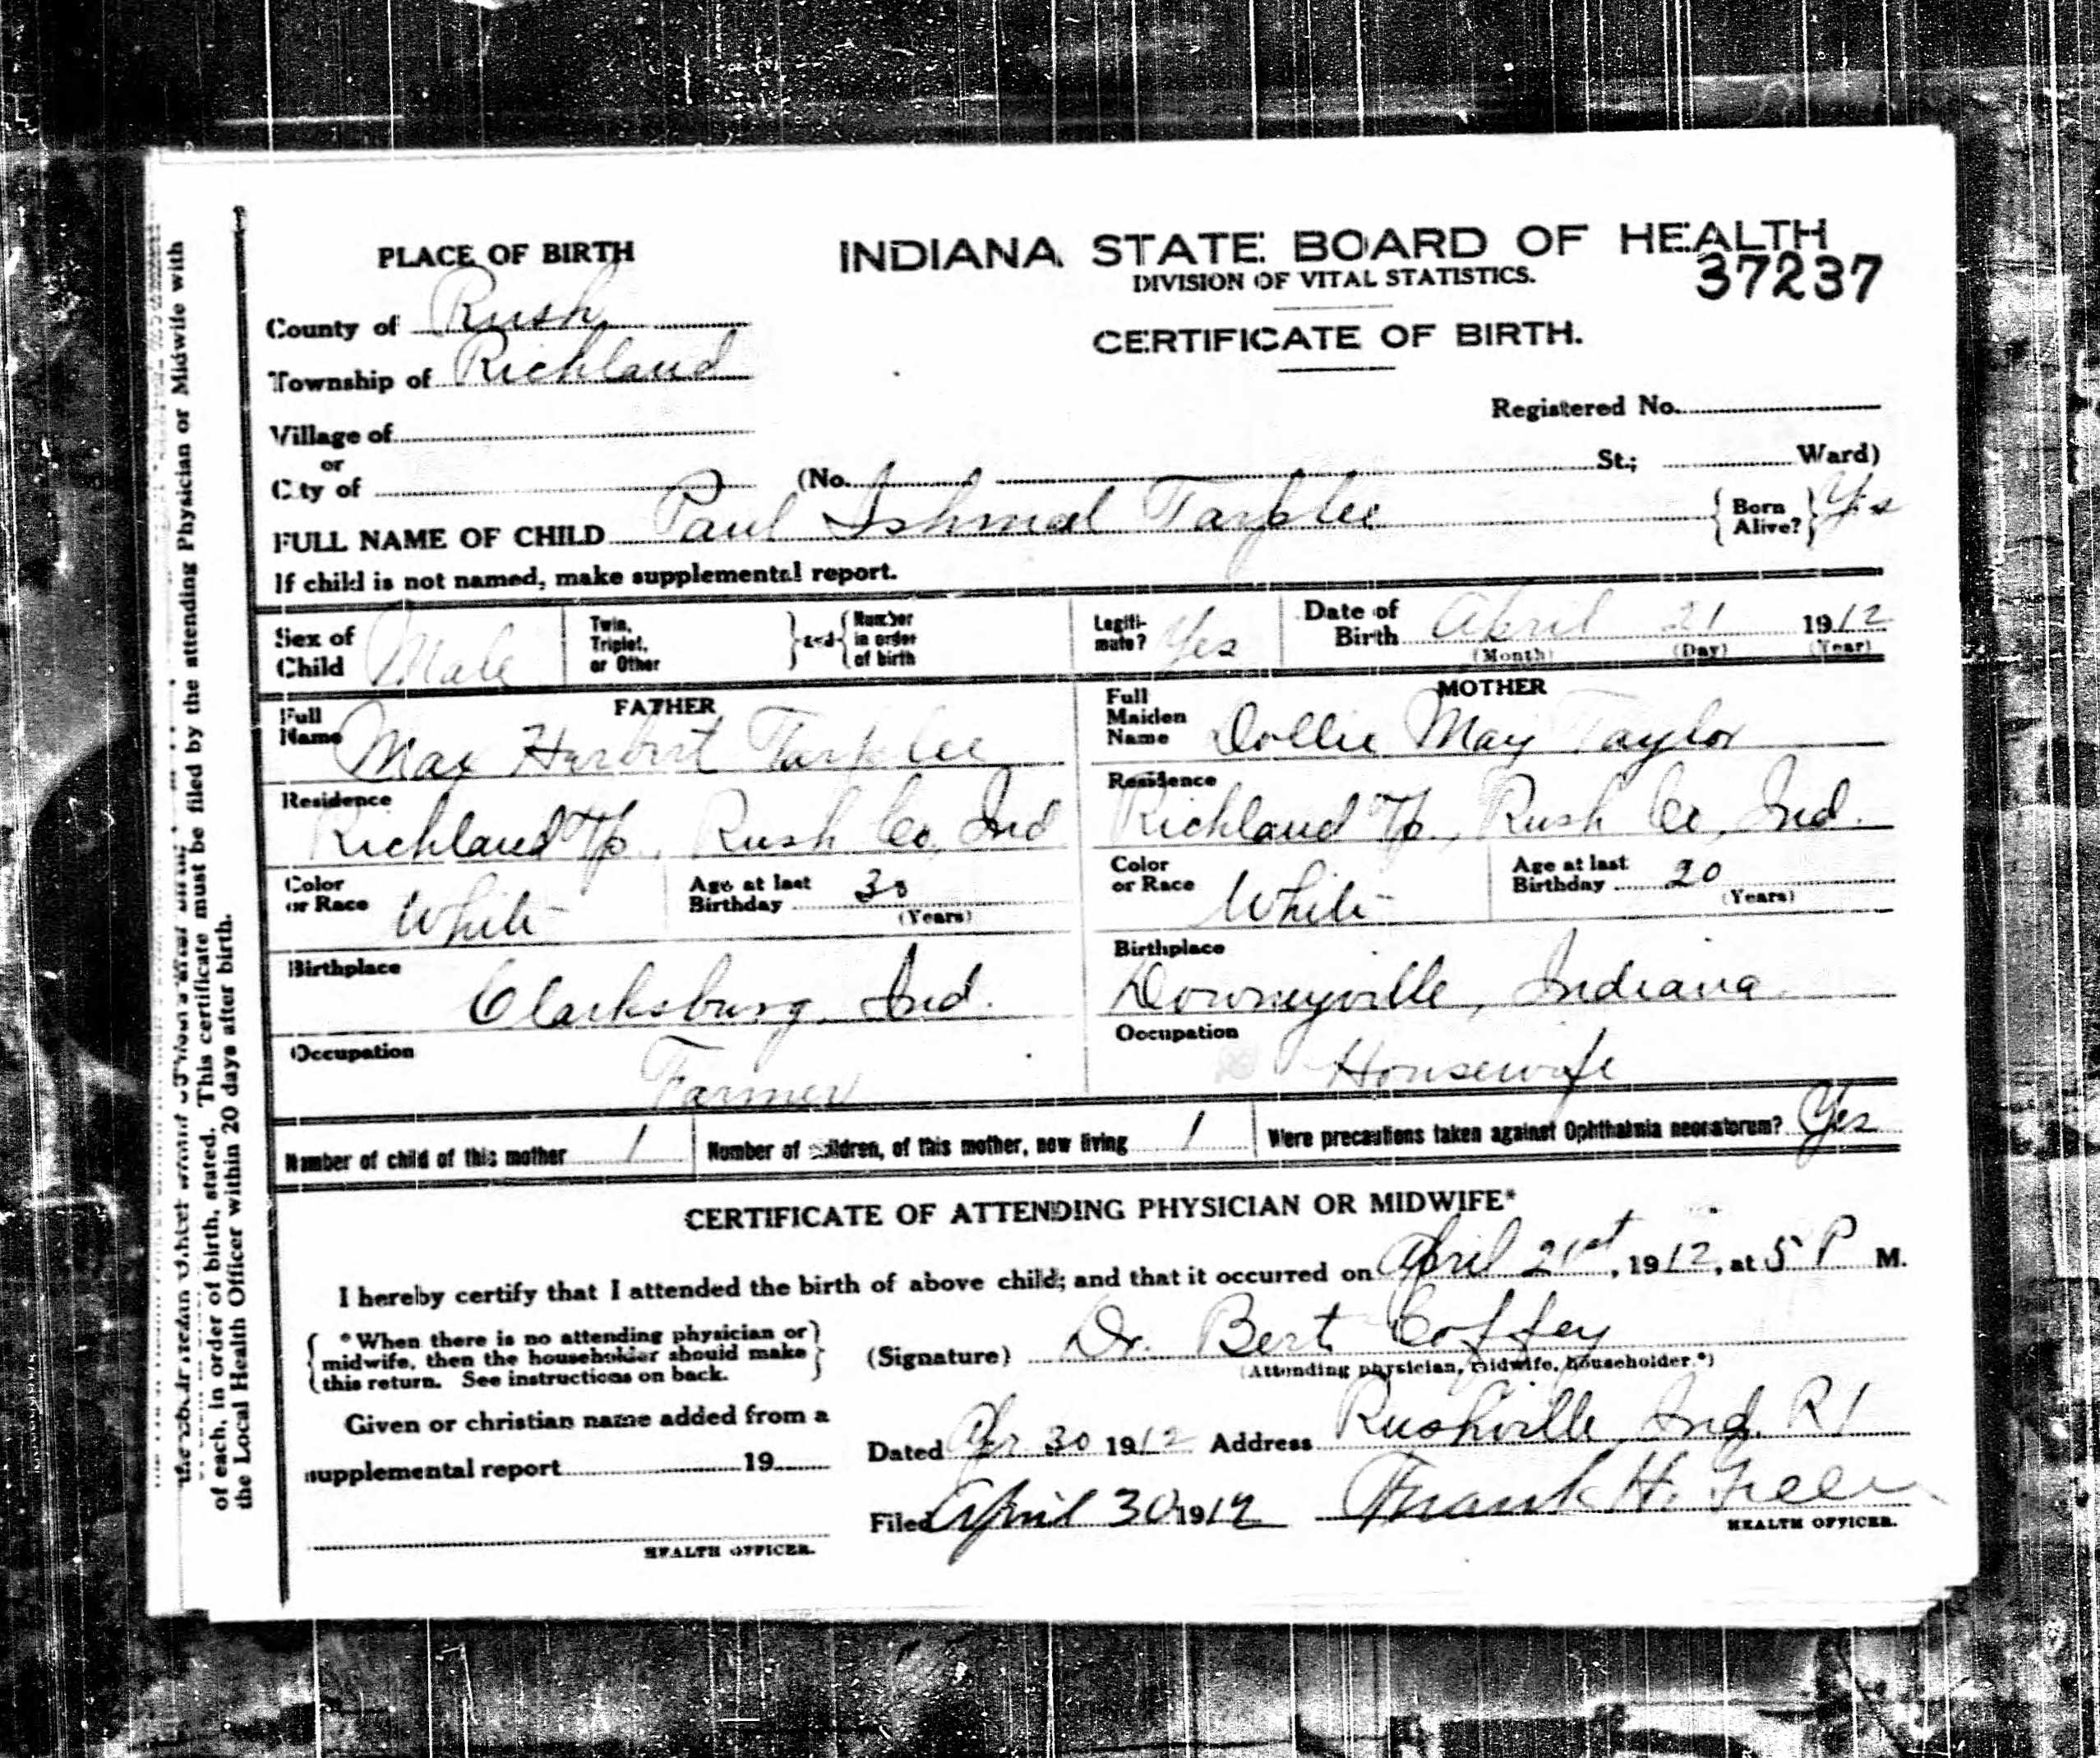 PLACE OF BIRTH
INDIANA STATE BOARD OF HEALTH
DIVISION OF VITAL STATISTICS.
37237
CERTIFICATE OF BIRTH.
County of Rush
Township of Richland
Registered No.
Village of
or
City of (No. St.; Ward)
FULL NAME OF CHILD Paul Ishmal Tarplee { Born Alive? } Yes
If child is not named, make supplemental report.
Sex of Child Male Twin, Triplet, or Other } and { Number in order of birth Legiti-mate? Yes Date of Birth April 21 1912
(Month) (Day) (Year)
FATHER
Full Name Max Harbert Tarplee
Residence
Richland Tp., Rush Co, Ind
Color or Race White Age at last Birthday 30
(Years)
Birthplace
Clarksburg, Ind.
Occupation
Farmer
MOTHER
Full Maiden Name Dollie May Taylor
Residence
Richland Tp., Rush Co, Ind.
Color or Race White Age at last Birthday 20
(Years)
Birthplace
Downeyville, Indiana
Occupation
Housewife
Number of child of this mother 1 Number of children, of this mother, now living 1 Were precautions taken against Ophthalmia neonatorum? Yes
CERTIFICATE OF ATTENDING PHYSICIAN OR MIDWIFE*
I hereby certify that I attended the birth of above child; and that it occurred on April 21st, 1912, at 5 P M.
{ *When there is no attending physician or
midwife, then the householder should make
this return. See instructions on back. }
(Signature) Dr. Bert Coffey
(Attending physician, midwife, householder.*)
Given or christian name added from a
supplemental report 19
HEALTH OFFICER.
Dated Apr 30 1912 Address Rushville Ind. R1
Filed April 30 1912 Frank H. Green
HEALTH OFFICER.
filed by the attending Physician or Midwife with
of each, in order of birth, stated. This certificate must be
the Local Health Officer within 20 days after birth.